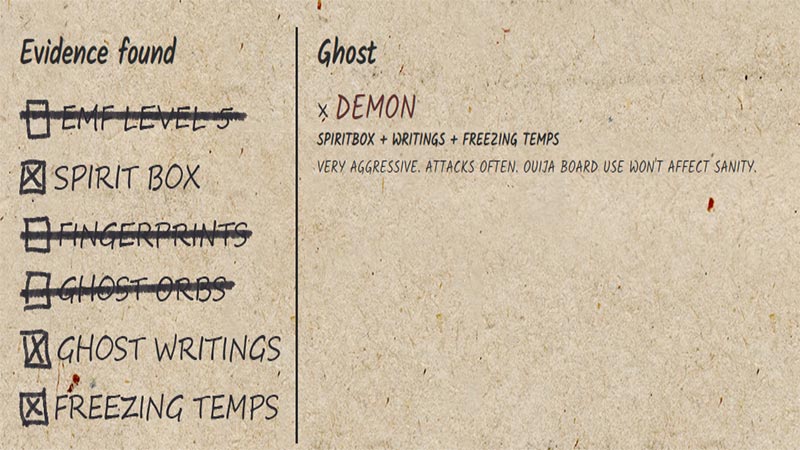 Evidence found
EMF LEVEL 5
SPIRIT BOX
FINGERPRINTS
GHOST ORBS
GHOST WRITINGS
FREEZING TEMPS
Ghost
x DEMON
SPIRITBOX + WRITINGS + FREEZING TEMPS
VERY AGGRESSIVE. ATTACKS OFTEN. OUIJA BOARD USE WON'T AFFECT SANITY.